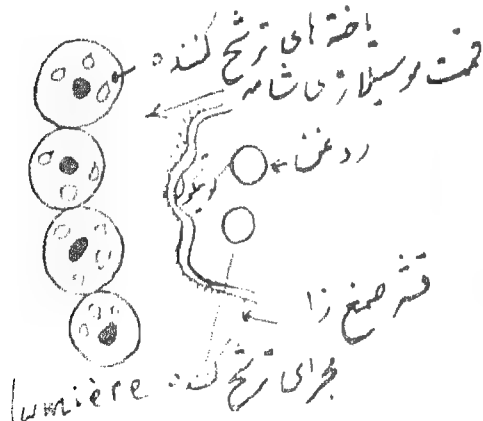 یاخته های ترشح کننده
قسمت موسیلاژی شامه
روغن
قشر صمغ زا
مجرای ترشح کننده
lumière